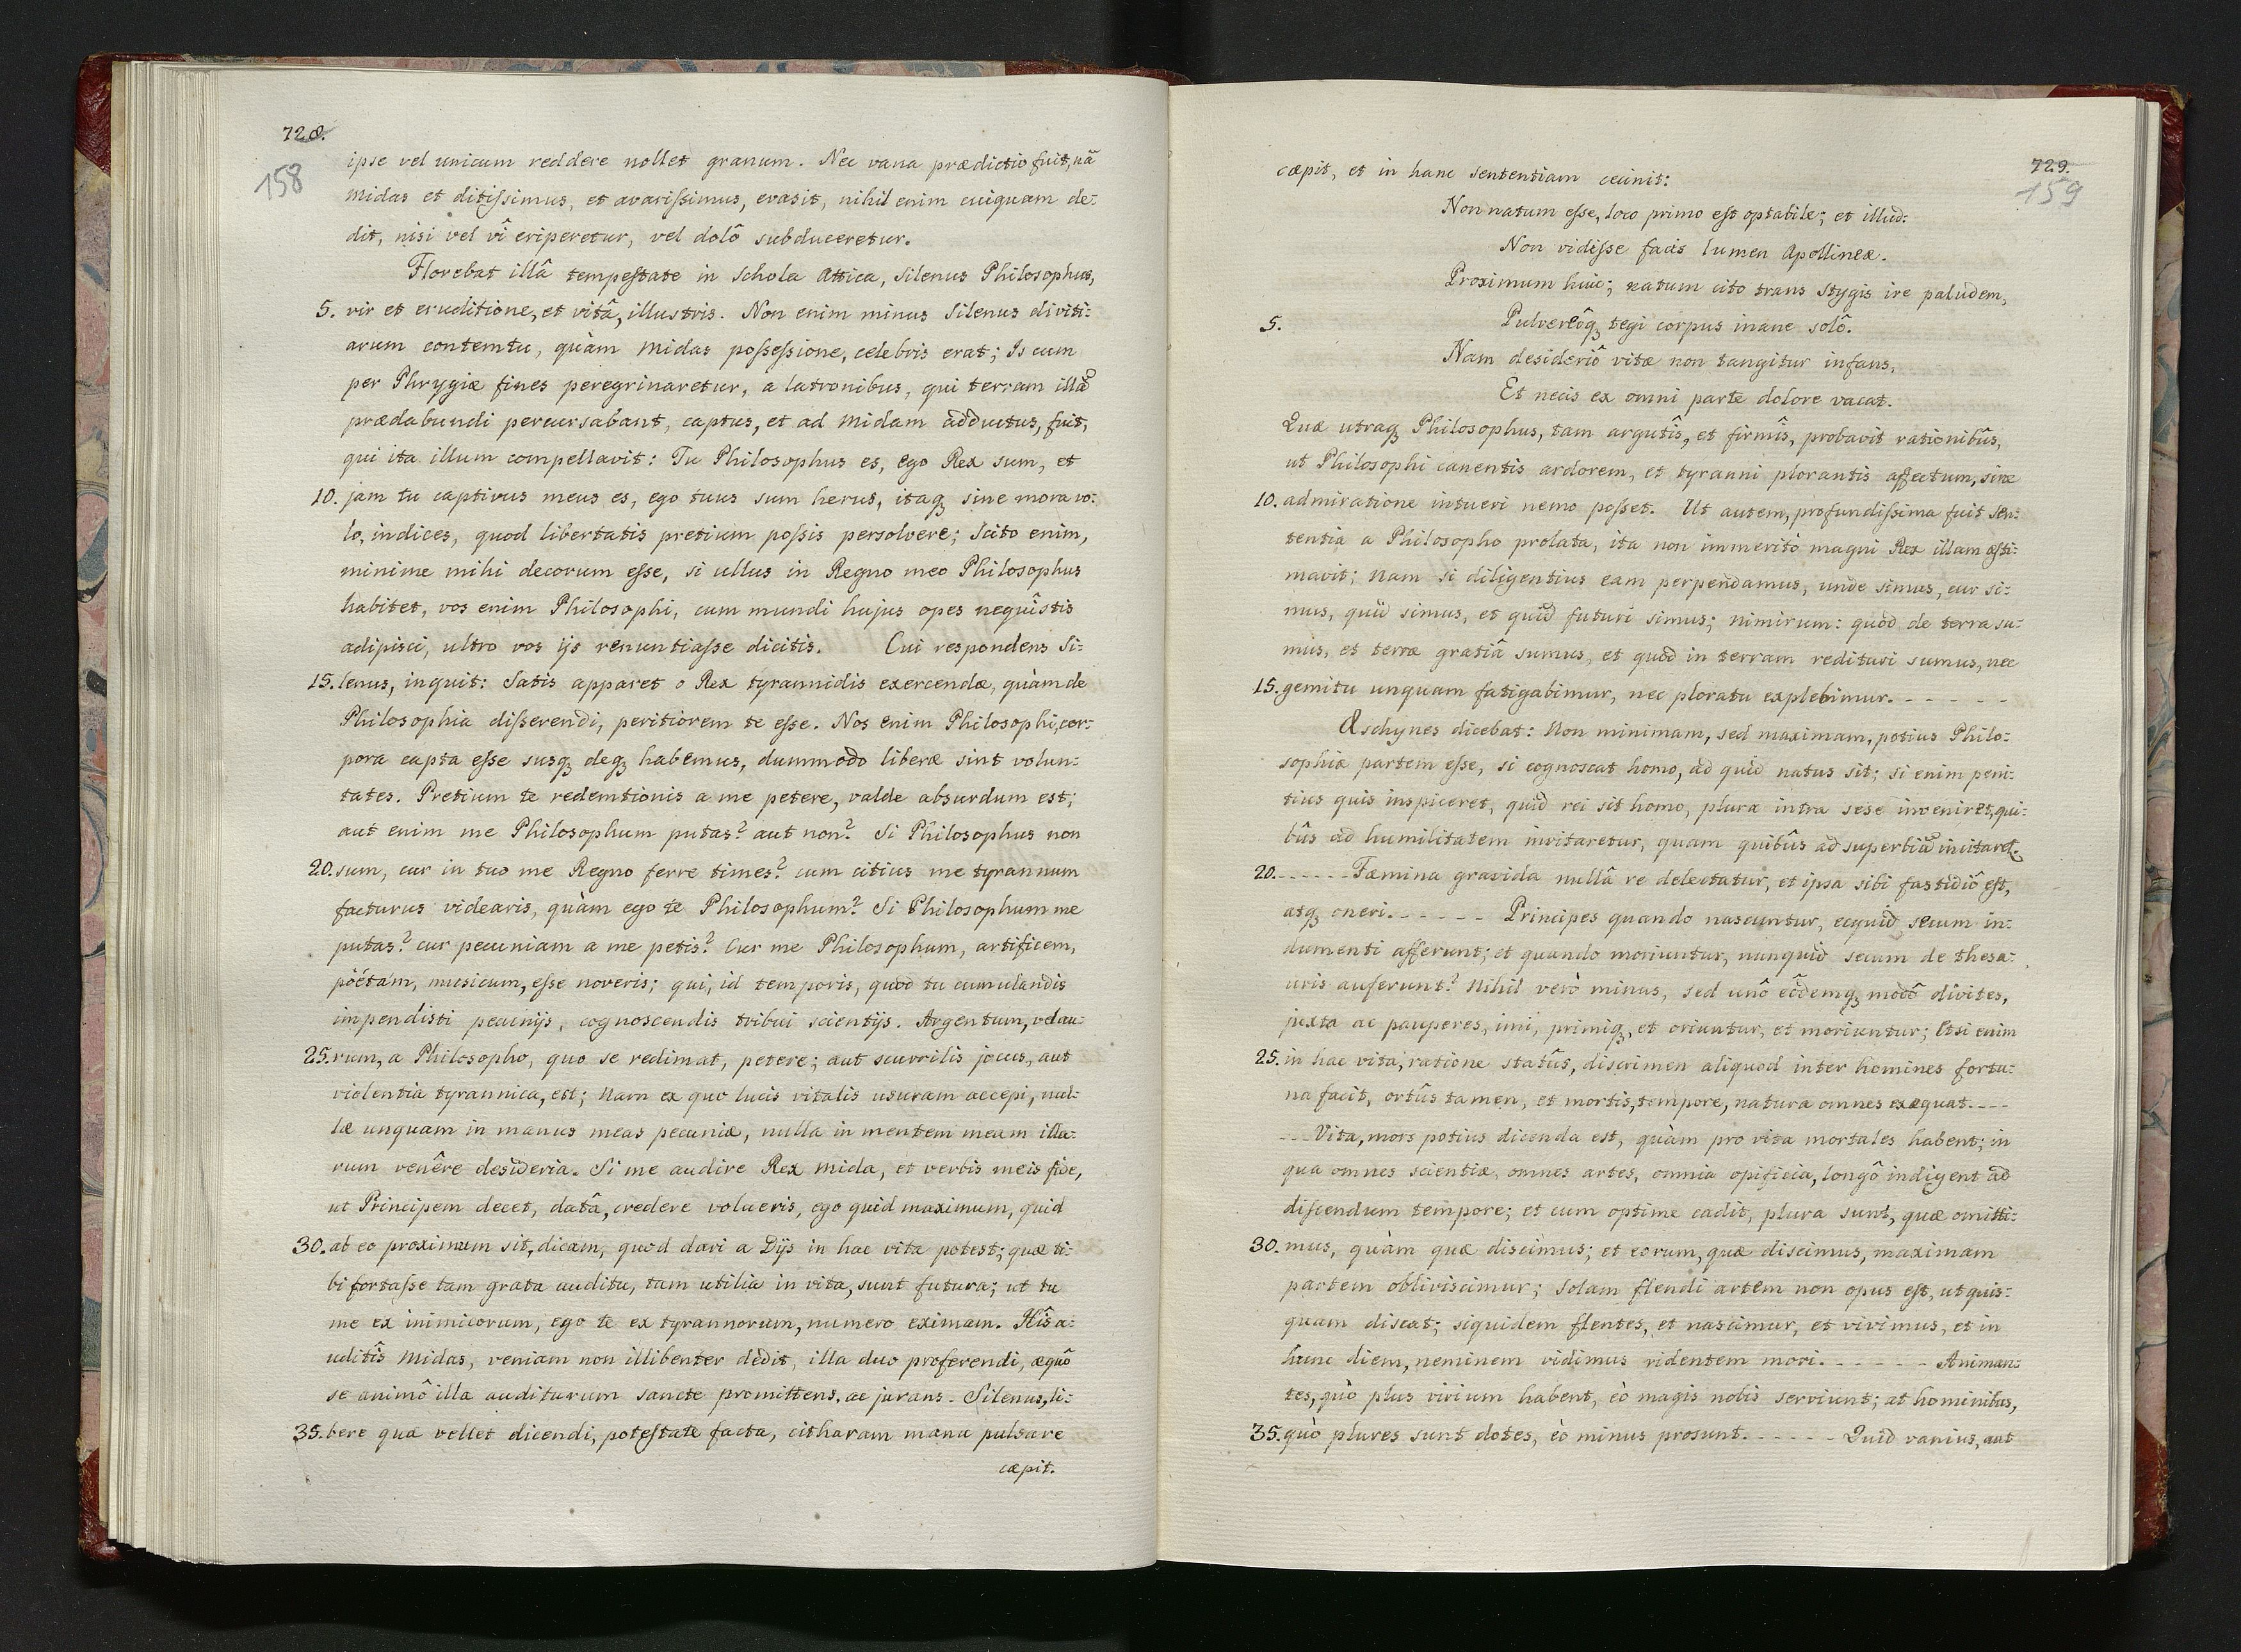 728.
158
ipse vel unicum reddere nollet granum. Nec vana prædictio fuit, nã
Midas et ditissimus, et avarissimus, evasit, nihil enim cuiquam de:
dit, nisi vel vî eriperetur, vel dolô subduceretur.
Florebat illâ tempestate in Schola Attica, Silenus Philosophus,
5. vir et eruditione, et vitâ, illustris. Non enim minus Silenus diviti:
arum contemtu, quàm Midas possessione, celebris erat; Is cum
per Phrygiæ fines peregrinaretur, a latronibus, qui terram illã
prædabundi percursabant, captus, et ad Midam adductus, fuit,
qui ita illum compellavit: Tu Philosophus es, ego Rex sum, et
10. jam tu captivus meus es, ego tuus sum herus, itaq sine mora vo:
lo, indices, quod libertatis pretium possis persolvere; Scito enim,
minime mihi decorum esse, si ullus in Regno meo Philosophus
habitet, vos enim Philosophi, cum mundi hujus opes nequîstis
adipisci, ultro vos ijs renuntiasse dicitis. Cui respondens Si:
15. lenus, inquit: Satis apparet o Rex tyrannidis exercendæ, quàm de
Philosophia disserendi, peritiorem te esse. Nos enim Philosophi, cor:
pora capta esse susq deq habemus, dummodo liberæ sint volun:
tates. Pretium te redemtionis a me petere, valde absurdum est;
aut enim me Philosophum putas? aut non? Si Philosophus non
20. sum, cur in tuo me Regno ferre times? cum citius me tyrannum
facturus videaris, quàm ego te Philosophum? Si Philosophum me
putas? cur pecuniam a me petis? Cur me Philosophum, artificem,
pöétam, musicum, esse noveris; qui, id temporis, quod tu cumulandis
impendisti pecunijs, cognoscendis tribui scientijs. Argentum, vel au:
25. rum, a Philosopho, quo se redimat, petere; aut scurrilis jocus, aut
violentia tyrannica, est; Nam ex quo lucis vitalis usuram accepi, nul:
læ unquam in manus meas pecuniæ, nulla in mentem meam illa:
rum venêre desideria. Si me audire Rex Mida, et verbis meis fide,
ut Principem decet, datâ, credere volueris, ego quid maximum, quid
30. at eo proximum sit, dicam, quod dari a Dijs in hac vita potest; quæ ti:
bi fortasse tam grata auditu, tam utilia in vita, sunt futura; ut tu
me ex inimicorum, ego te ex tyrannorum, numero eximam. Hîs a:
uditîs Midas, veniam non illibenter dedit, illa duo proferendi, æquô
se animô illa auditurum sancte promittens, ac jurans. Silenus, li:
35. bere quæ vellet dicendi, potestate facta, citharam manu pulsare
cæpit.
729.
159
cæpit, et in hanc sententiam cecinit:
Non natum esse, loco primo est optabile; et illud:
Non vidisse facis lumen Apollineæ.
Proximum huic; natum cito trans Stygis ire paludem,
5. Pulvereôq tegi corpus inane solô.
Nam desideriô vitæ non tangitur infans,
Et necis ex omni parte dolore vacat.
Quæ utraq Philosophus, tam argutîs, et firmîs, probavit rationibûs,
ut Philosophi canentis ardorem, et tyranni plorantis affectum, sine
10. admiratione intueri nemo posset. Ut autem, profundissima fuit sen:
tentia a Philosopho prolata, ita non immeritò magni Rex illam æsti:
mavit; Nam si diligentius eam perpendamus, unde simus, cur si:
mus, quid simus, et quid futuri simus; nimirum: quod de terra su:
mus, et terræ gratiâ sumus, et quod in terram redituri sumus, nec
15. gemitu unquam fatigabimur, nec ploratu explebimur. - - - - -
Æschynes dicebat: Non minimam, sed maximam, potius Philo:
sophiæ partem esse, si cognoscat homo, ad quid natus sit; si enim peni:
tius quis inspiceret, quid rei sit homo, plura intra sese inveniret, qui:
bûs ad humilitatem invitaretur, quam quibûs ad superbiã incitaret.
20. - - - - - - Fæmina gravida nullâ re delectatur, et ipsa sibi fastidiô est,
atq oneri. - - - - - Principes quando nascuntur, ecquid secum in:
dumenti afferunt; et quando moriuntur, nunquid secum de thesa:
uris auferunt? Nihil verò minus, sed unô eôdemq modô divites,
juxta ac pauperes, imi, primiq, et oriuntur, et moriuntur; Etsi enim
25. in hac vita, ratione statûs, discrimen aliquod inter homines fortu:
na facit, ortûs tamen, et mortis, tempore, natura omnes exæquat. - - -
- - - Vita, mors potius dicenda est, quàm pro vita mortales habent; in
qua omnes scientiæ, omnes artes, omnia opificia, longô indigent ad
discendum tempore; et cum optime cadit, plura sunt, quæ omitti:
30. mus, quàm quæ discimus; et eorum, quæ discimus, maximam
partem obliviscimur; Solam flendi artem non opus est, ut quis:
quam discat; siquidem flentes, et nascimur, et vivimus, et in
hunc diem, neminem vidimus ridentem mori. - - - - - - Animan:
tes, quò plus virium habent, eò magis nobis serviunt; at hominibus,
35. quò plures sunt dotes, eò minus prosunt. - - - - - Quid vanius, aut